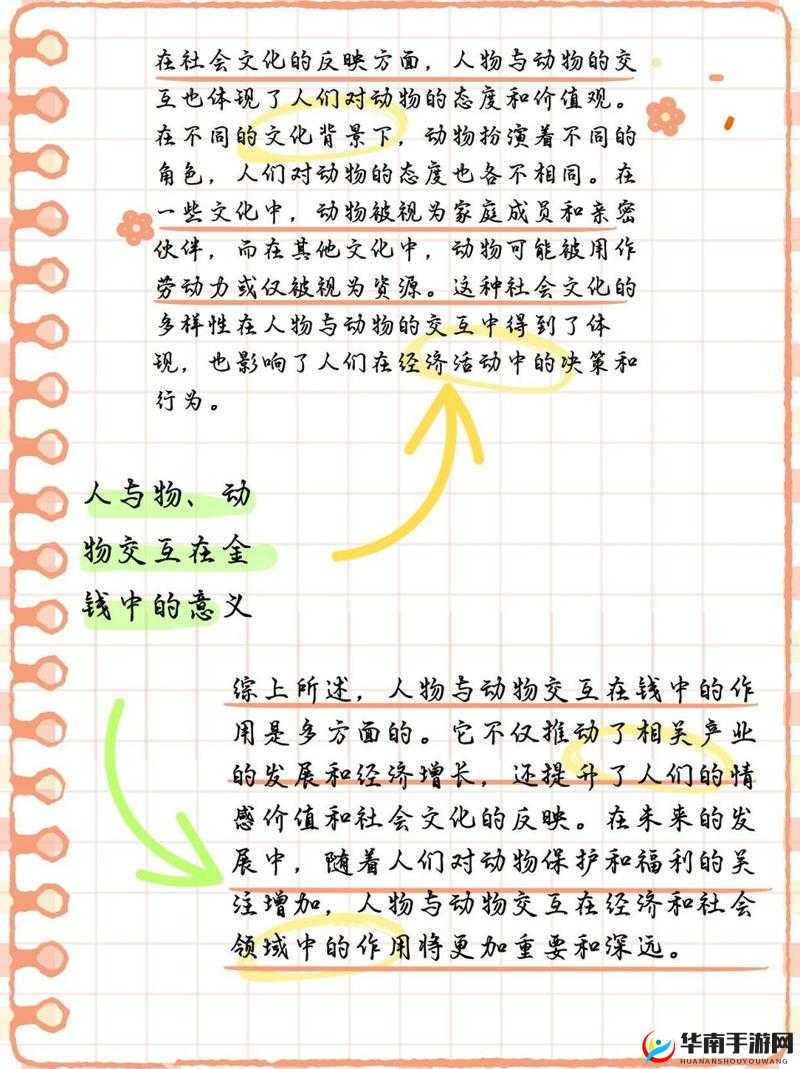 在社会文化的反映方面，人物与动物的交
互也体现了人们对动物的态度和价值观。
在不同的文化背景下，动物扮演着不同的
角色，人们对动物的态度也各不相同。在
一些文化中，动物被视为家庭成员和亲密
伙伴，而在其他文化中，动物可能被用作
劳动力或仅被视为资源。这种社会文化的
多样性在人物与动物的交互中得到了体
现，也影响了人们在经济活动中的决策和
行为。
人与物、动
物交互在金
钱中的意义
综上所述，人物与动物交互在钱中的作
用是多方面的。它不仅推动了相关产业
的发展和经济增长，还提升了人们的情
感价值和社会文化的反映。在未来的发
展中，随着人们对动物保护和福利的关
注增加，人物与动物交互在经济和社会
领域中的作用将更加重要和深远。
华南手游网
HUANANSHOUYOUWANG